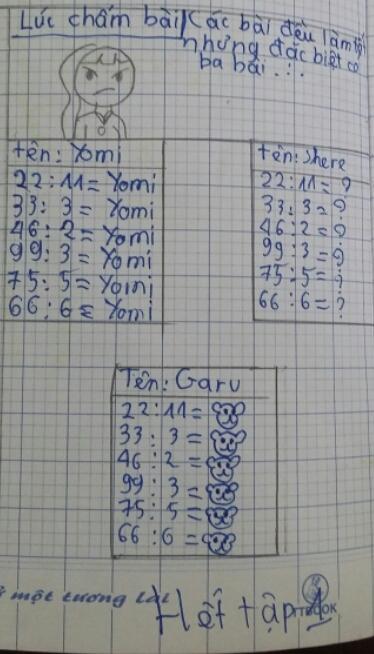 Lúc chấm bài
Các bài đều làm tốt
nhưng đặc biệt có
ba bài...
tên: Yomi
22:11= Yomi
33: 3= Yomi
46:2= Yomi
99:3= Yomi
75:5= Yomi
66:6= Yomi
tên: Shere
22:11= ?
33:3= ?
46:2= ?
99:3= ?
75:5= ?
66:6= ?
Tên: Garu
22:11=
33: 3=
46:2=
99:3=
75:5=
66:6=
một tương lai
Hết tập 1